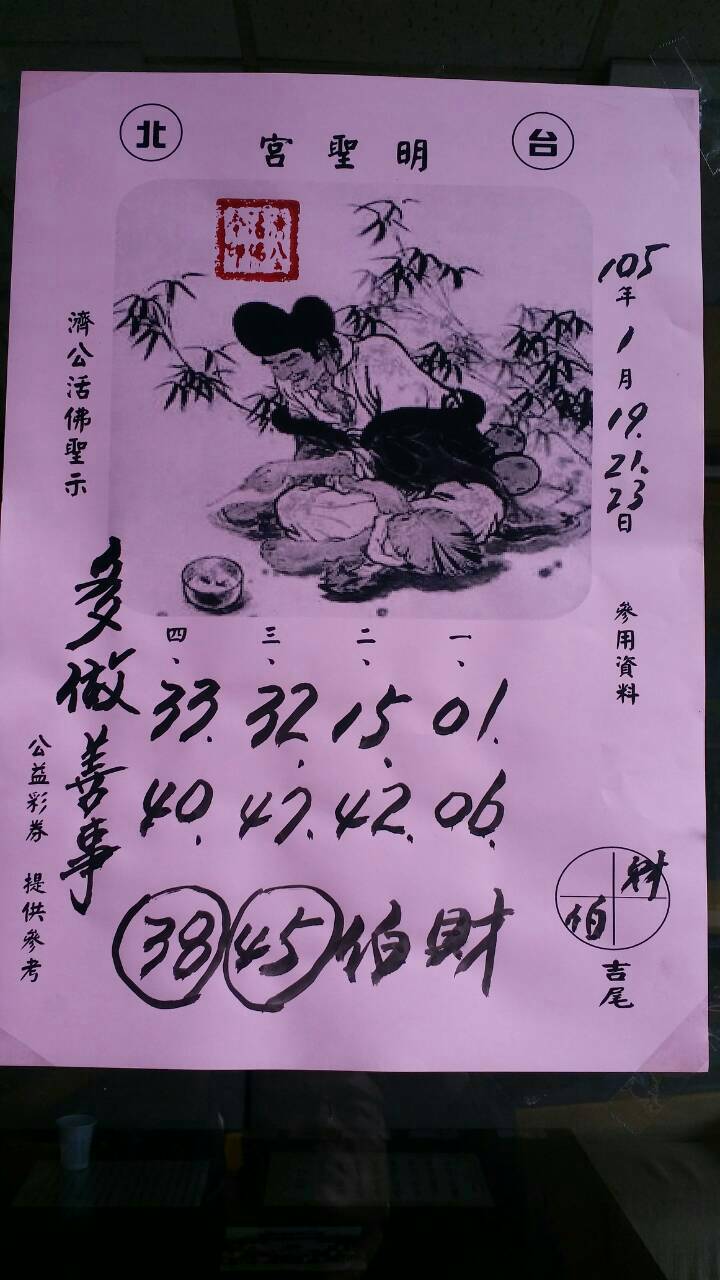 台北
明聖宮
105年1月19.21.23日
參用資料
濟公活佛聖示
一、二、三、四、
01. 15、 32、 33.
06. 42. 47. 40.
財伯 45 38
多做善事
財
伯
吉尾
公益彩券 提供參考